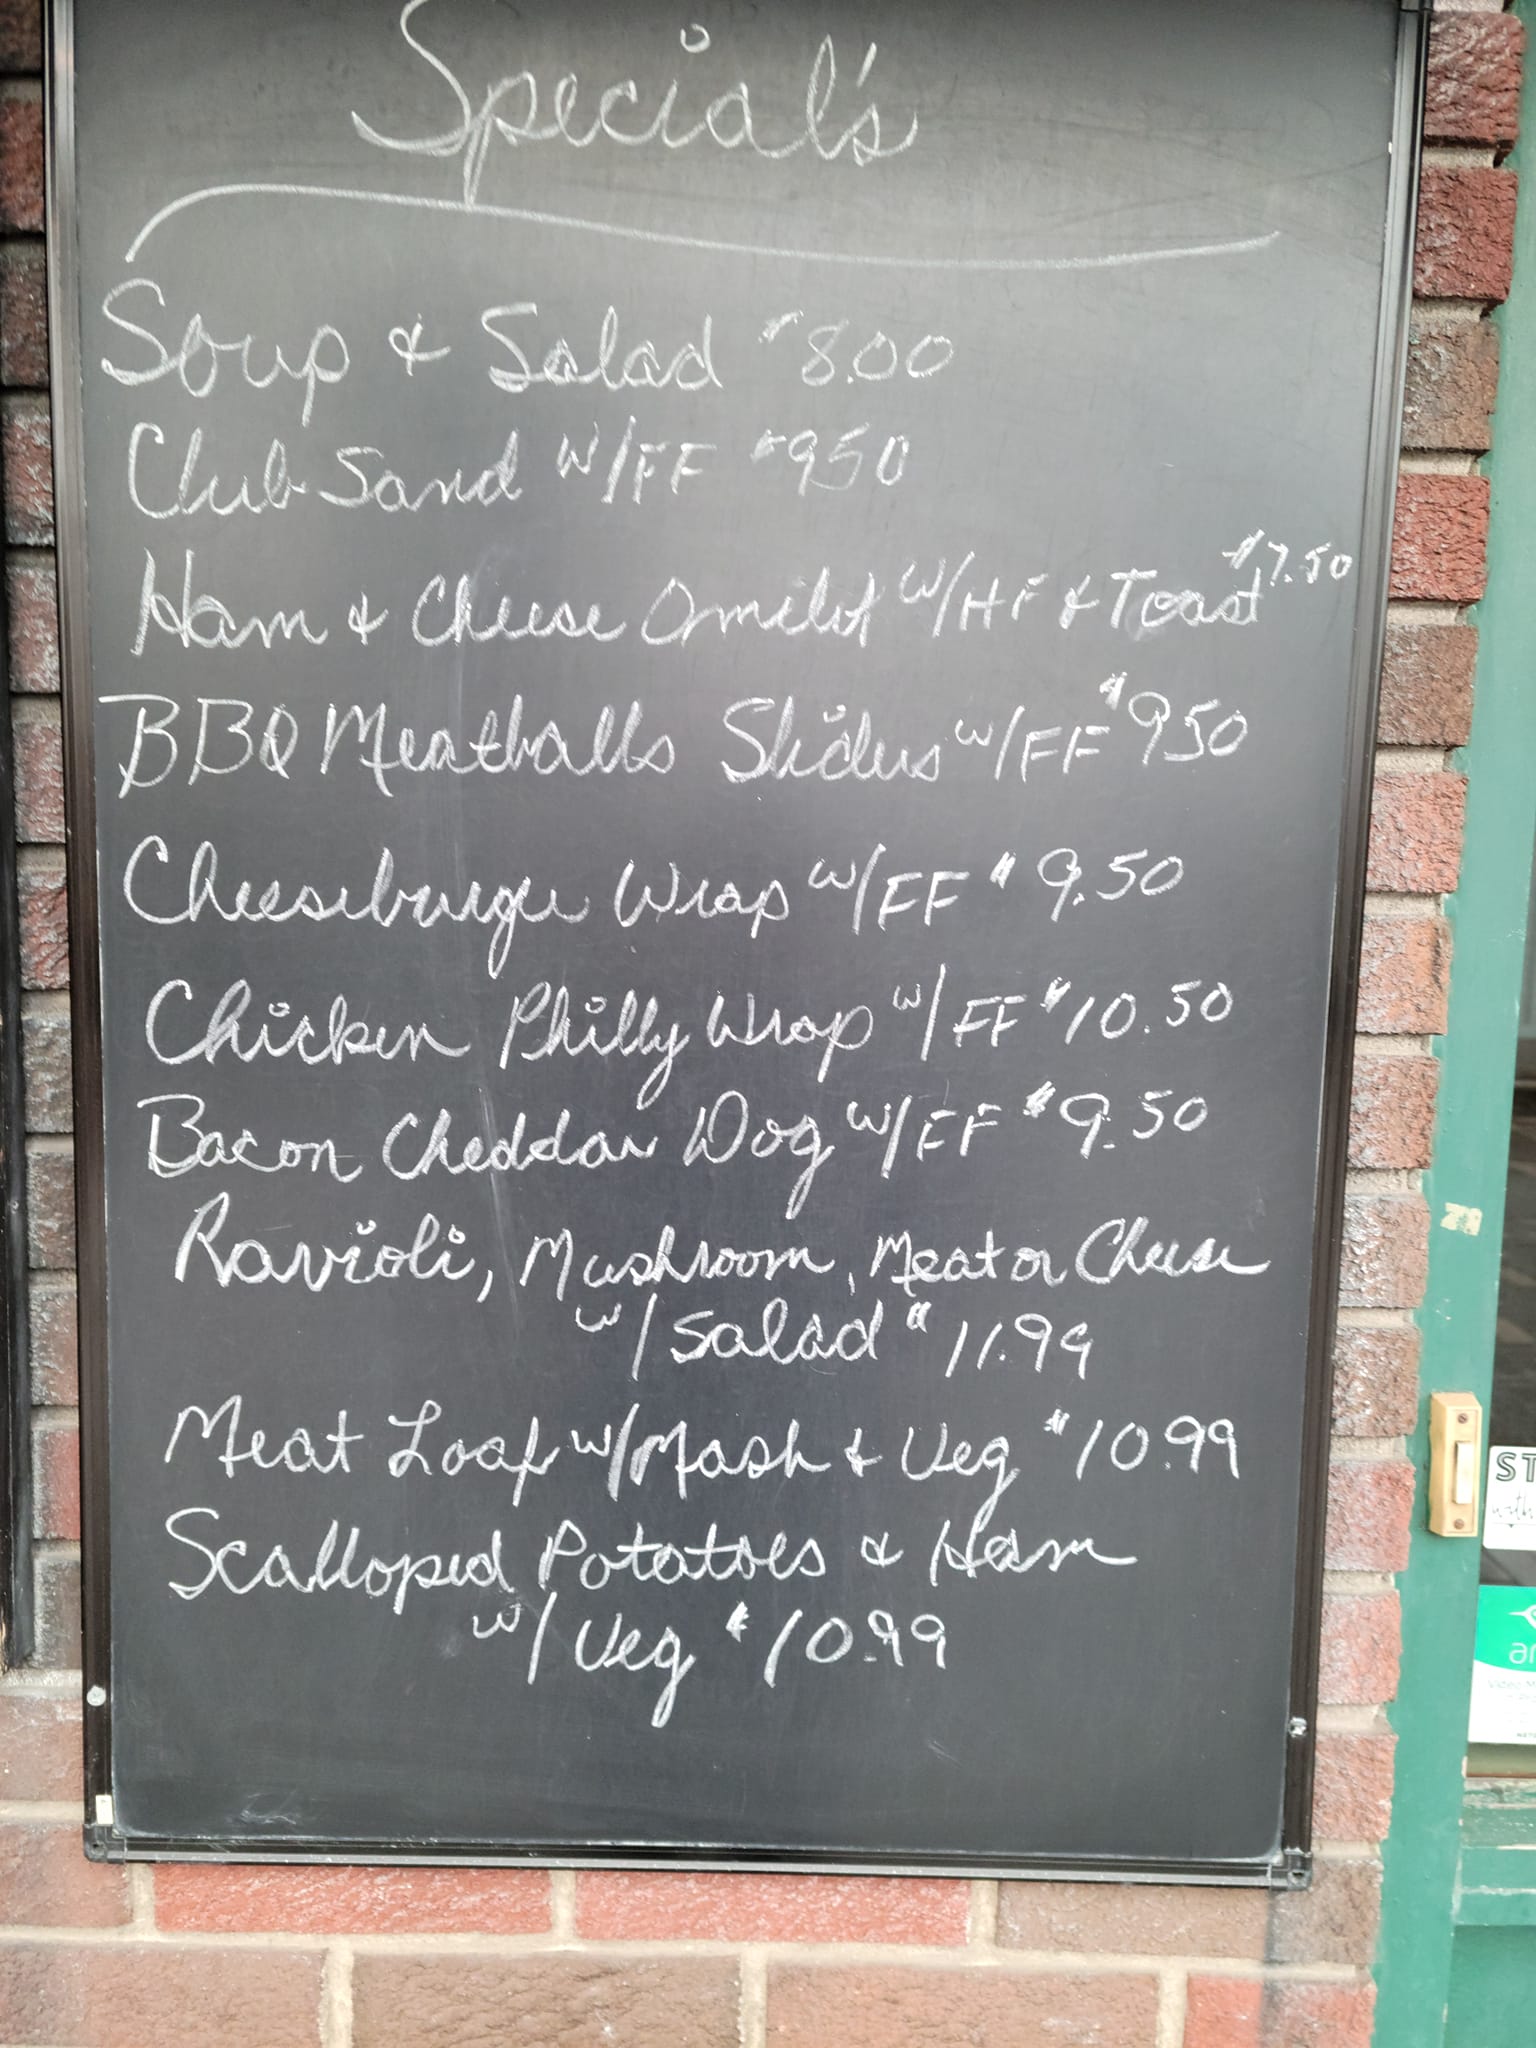 Special's
Soup & Salad $8.00
Club Sand w/FF $950
Ham & Cheese Omilet w/HF & Toast $7.50
BBQ Meatballs Sliders w/FF $950
Cheeseburger Wrap w/FF $9.50
Chicken Philly Wrap w/FF $10.50
Bacon Cheddar Dog w/FF $9.50
Ravioli, Mushroom, Meat or Cheese
w/Salad $11.99
Meat Loaf w/Mash & Veg $10.99
Scalloped Potatoes & Ham
w/Veg $10.99
ST
with